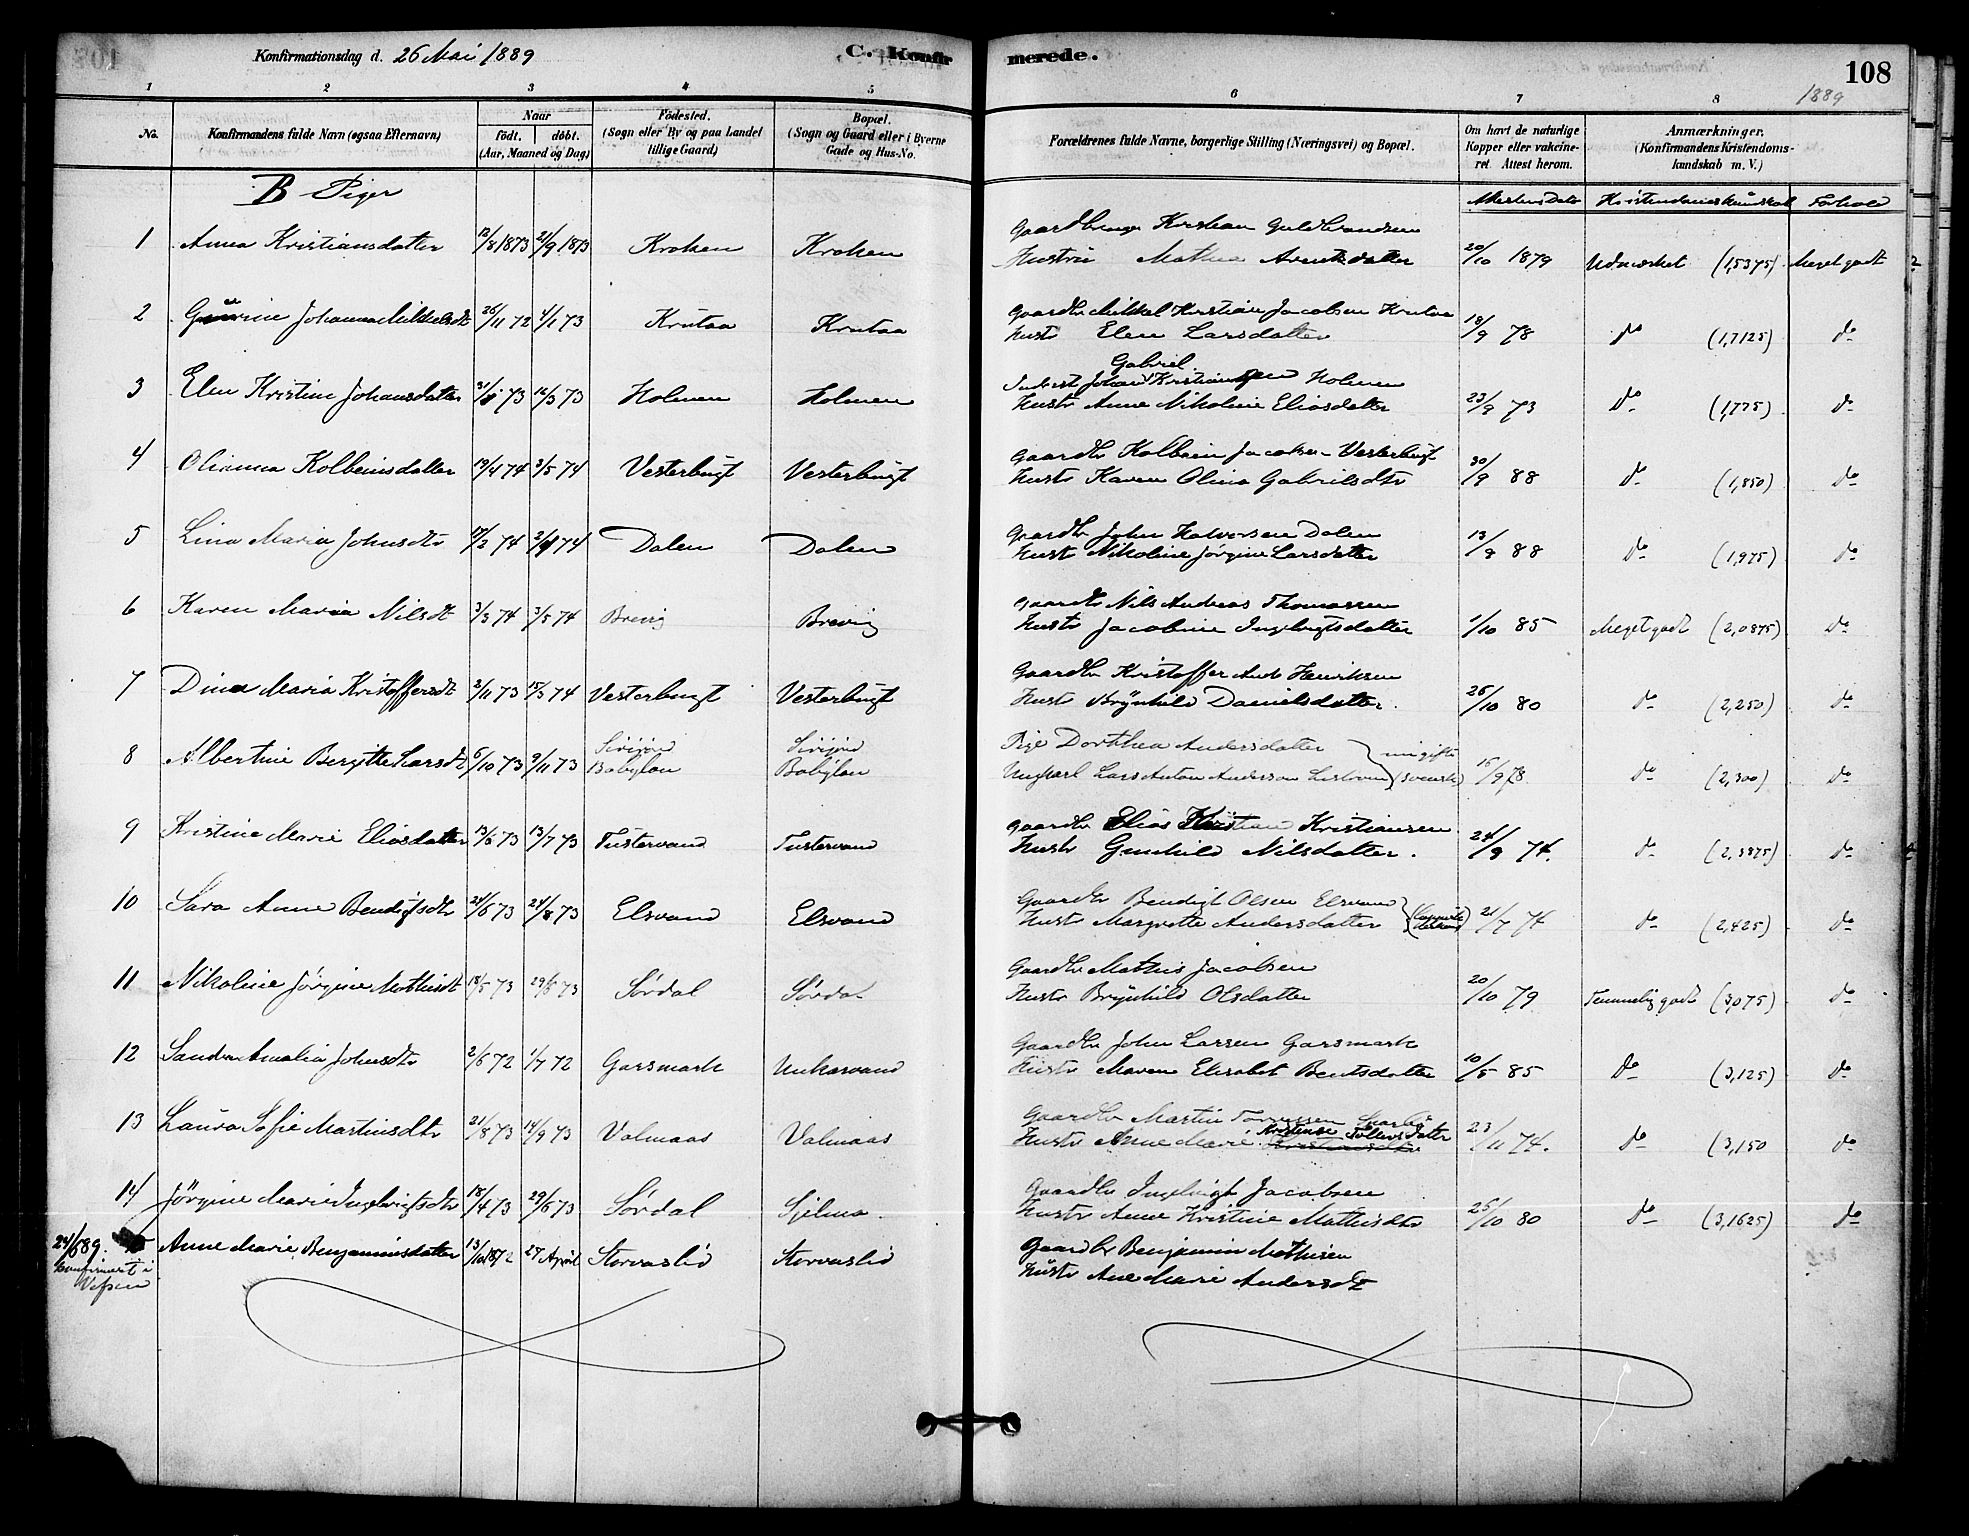 Konfirmationsdag d. 26 Mai 1889
C. Konfirmerede.
108
1889
1 2 3 4 5 6 7 8
No.
Konfirmandens fulde Navn (ogsaa Efternavn)
Naar
født. døbt.
(Aar, Maaned og Dag)
Fødested.
(Sogn eller By og paa Landet
tillige Gaard)
Bopæl.
(Sogn og Gaard eller i Byerne
Gade og Hus-No.
Forældrenes fulde Navne, borgerlige Stilling (Næringsvei) og Bopæl.
Om havt de naturlige
Kopper eller vakcine-
ret. Attest herom.
Anmærkninger.
(Konfirmandens Kristendoms-
kundskab m. V.)
B Piger
Attestens Dato Kristendomskundskab Forhold
Gaardbruger Kristian Guldbrandsen
1 Anna Kristiansdatter 12/8 1873 21/9 1873 Kroken Kroken Hustru Mathea Arentsdatter 20/10 1879 Udmærket (1,5375) Meget godt
Gaardbr Mikkal Kristian Jacobsen Krutaa
2 Johanna Mikkelsdt 26/11 72 4/1 73 Krutaa Krutaa Hustr Elen Larsdatter 18/9 78 do (1,7125) do
Gabriel
Inderst Johan Kristiansen Holmen
3 Elen Kristine Johansdatter 73 16/3 73 Holmen Holmen Hustr Anne Nikoline Eliasdatter 23/9 73 do (1,775) do
Gaardbr Kolbein Jacobsen Vesterbugt
4 Olianna Kolbeinsdatter 19/4 74 3/5 74 Vesterbugt Vesterbugt Hustr Karen Olina Gabrielsdtr 30/9 88 do (1,850) do
Gaardbr John Halvorsen Dalen
5 Lina Maria Johnsdtr 74 74 Dalen Dalen Hustr Nikoline Jørgine Larsdatter 13/9 88 do (1,975) do
Gaardbr Nils Andreas Thomassen
6 Karen Maria Nilsdt 3/3 74 3/5 74 Brevig Brevig Hustr Jacobine Ingebrigtsdatter 1/10 85 Meget godt (2,0875) do
Gaardbr Kristoffer And Henriksen
7 Dina Maria Kristoffersdt 2/11 73 15/3 74 Vesterbugt Vesterbugt Hustr Brynhild Danielsdatter. 26/10 80 do (2,250) do
Pige Dorthea Andersdatter ugifte
8 Albertine Bergitte Larsdt 6/10 73 9/11 73 Babylon Babylon Ungkarl Lars Anton Andersson (svensk) 15/9 78 do (2,300) do
Gaardbr Elias Kristian Kristiansen
9 Kristine Marie Eliasdatter 13/6 73 13/7 73 Tustervand Tustervand Hustr Gunhild Nilsdatter. 24/9 74. do (2,3875) do
Gaardbr Bendigt Olsen Elsvand
10 Sara Anne Bendigtsdtr 24/6 73 24/8 73 Elsvand Elsvand Hustr Margrette Andersdatter 21/7 74 do (2,425) do
Gaardbr Mathis Jacobsen
11 Nikoline Jørgine Mathisdt 18/5 73 29/6 73 Sørdal Sørdal Hustr Brynhild Olsdatter 20/10 79 Temmelig godt (3,075) do
Gaardbr John Larsen Garsmark
12 Sandra Amalia Johnsdtr 2/6 72 1/7 72 Garsmark Unkarvand Hustr Maren Elisabet Bentsdatter 10/5 85 do (3,125) do
Gaardbr Martin
13 Laura Sofie Martinsdtr 21/8 73 14/9 73 Valmaas Valmaas Hustr Anne Marie Tollevsdatter 23/11 74. do (3,150 do
Gaardbr Ingebrigt Jacobsen
14 Jørgine Marie Ingebrigtsdtr 18/4 73 29/6 73 Sørdal Sjelmo Hustr Anne Kristine Mathisdtr 25/10 80 do (3,1625) do
24/6 89. Anne Marie Benjaminsdatter 13/10 1872 27 April Storvaslid Storvaslid Gaardbr Benjamin Mathisen
konfirmert i
Vefsen Hustr Ane Marie Andersdt